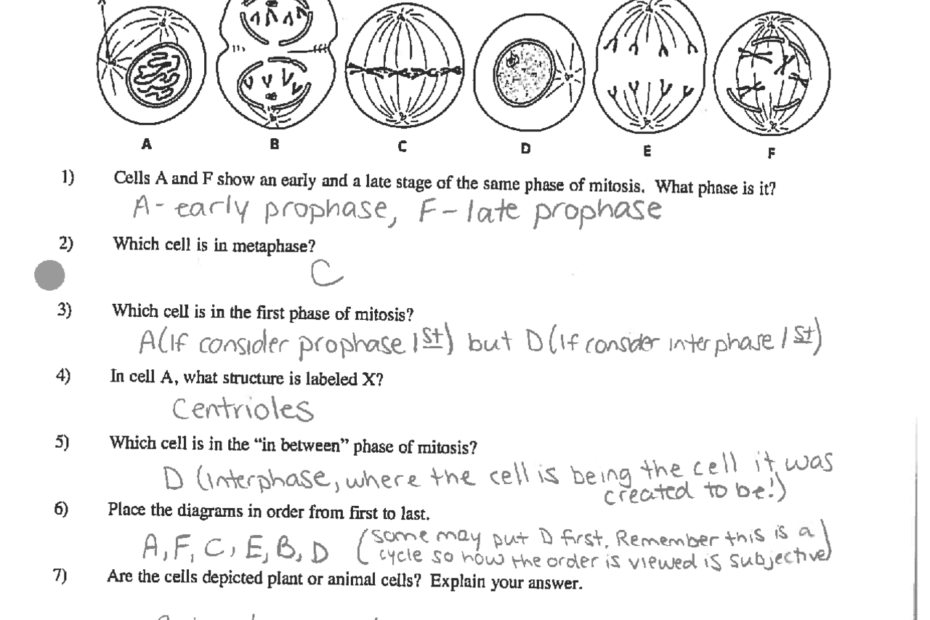 A B C D E F
1) Cells A and F show an early and a late stage of the same phase of mitosis. What phase is it?
A- early prophase, F- late prophase
2) Which cell is in metaphase?
C
3) Which cell is in the first phase of mitosis?
A (If consider prophase 1st) but D (If consider interphase 1st)
4) In cell A, what structure is labeled X?
Centrioles
5) Which cell is in the "in between" phase of mitosis?
D (interphase, where the cell is being the cell it was
created to be!)
6) Place the diagrams in order from first to last.
A, F, C, E, B, D (some may put D first. Remember this is a
cycle so how the order is viewed is subjective)
7) Are the cells depicted plant or animal cells? Explain your answer.